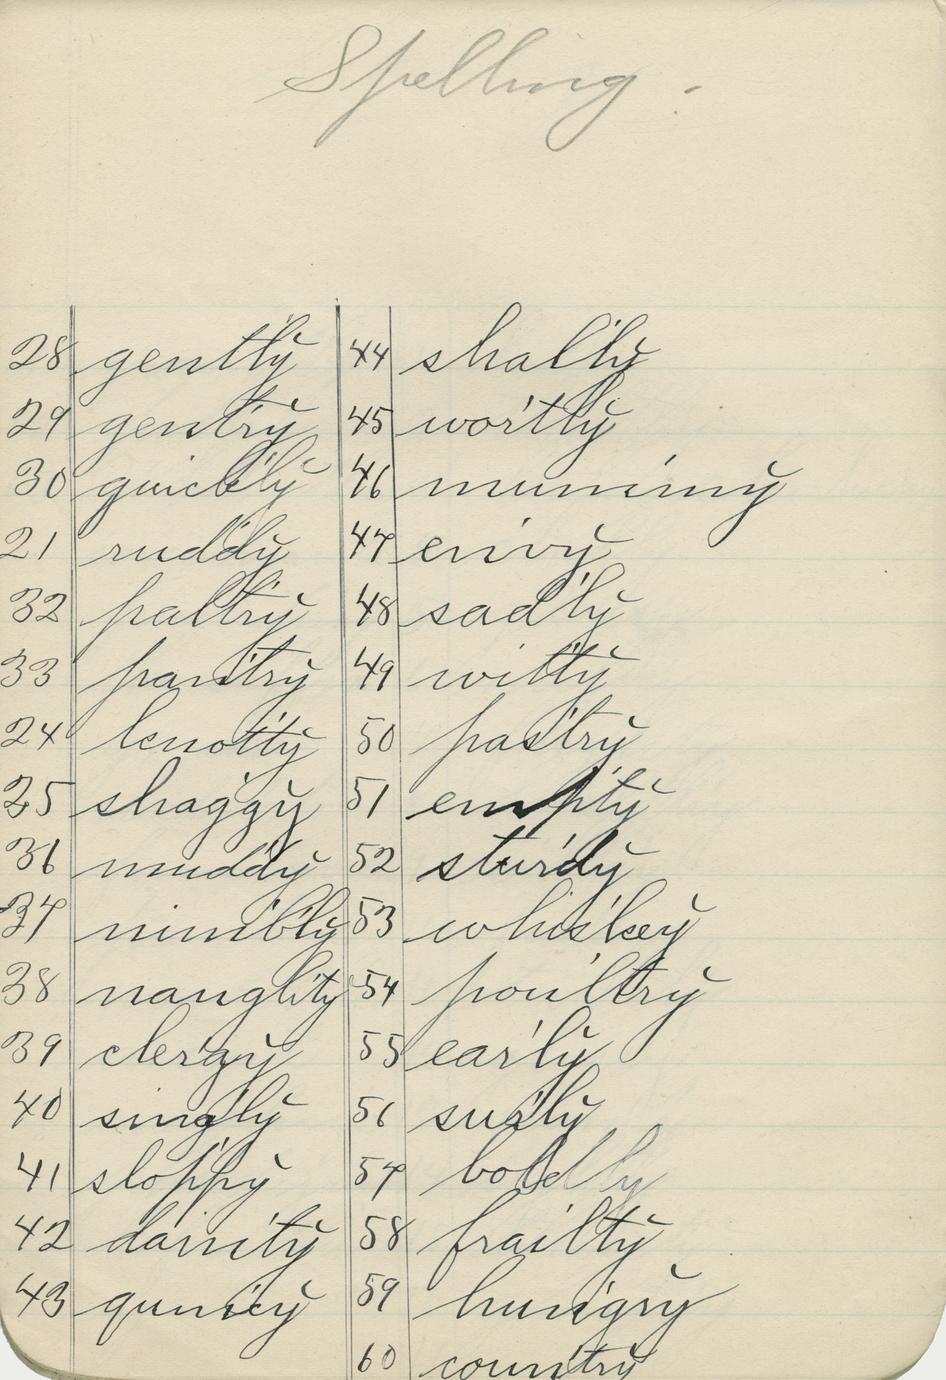 Spelling.
28 gently
29 gentry
30 quickly
21 ruddy
32 paltry
33 pantry
24 knotty
25 shaggy
36 muddy
37 nimbly
38 naughty
39 clergy
40 singly
41 sloppy
42 dainty
43 quincy
44 shally
45
46
47 envy
48 sadly
49 witty
50 pastry
51 empty
52 sturdy
53 whiskey
54 poultry
55 early
56
57 boldly
58 frailty
59 hungry
60 country